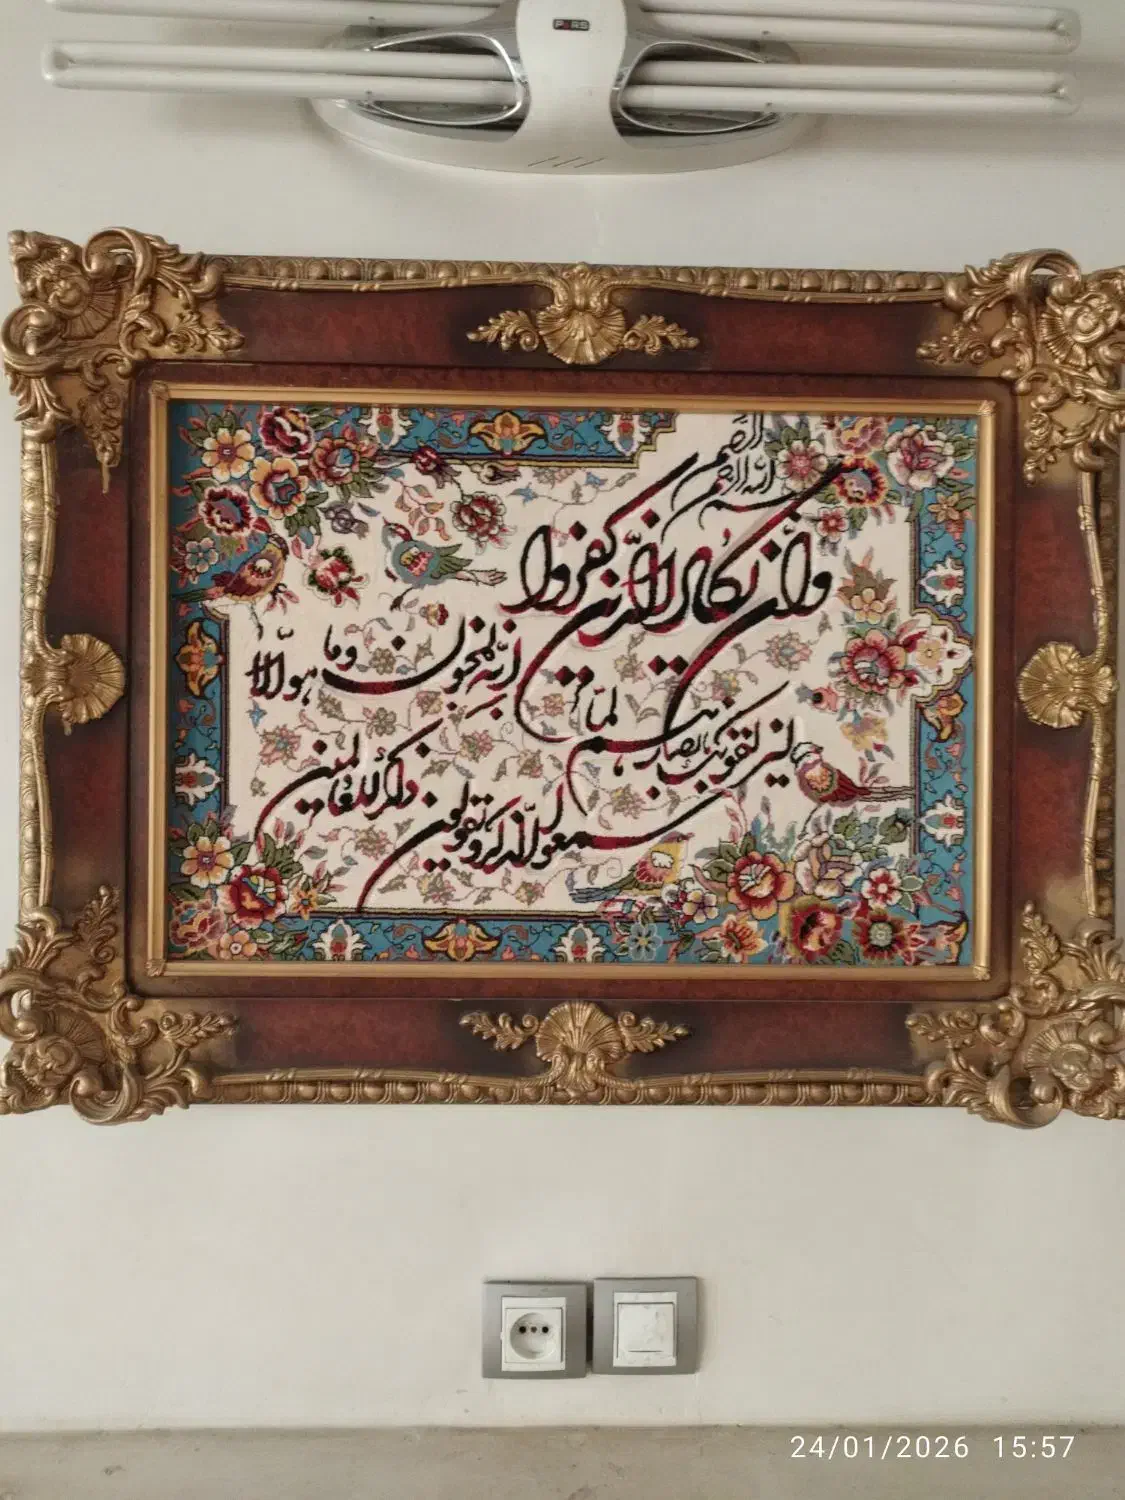 PARS
بسم الله الرحمن الرحیم
وان یکاد الذین کفروا
لیزلقونک بابصارهم لما
سمعوا الذکر و یقولون
انه لمجنون و ما هو الا
ذکر للعالمین
24/01/2026 15:57